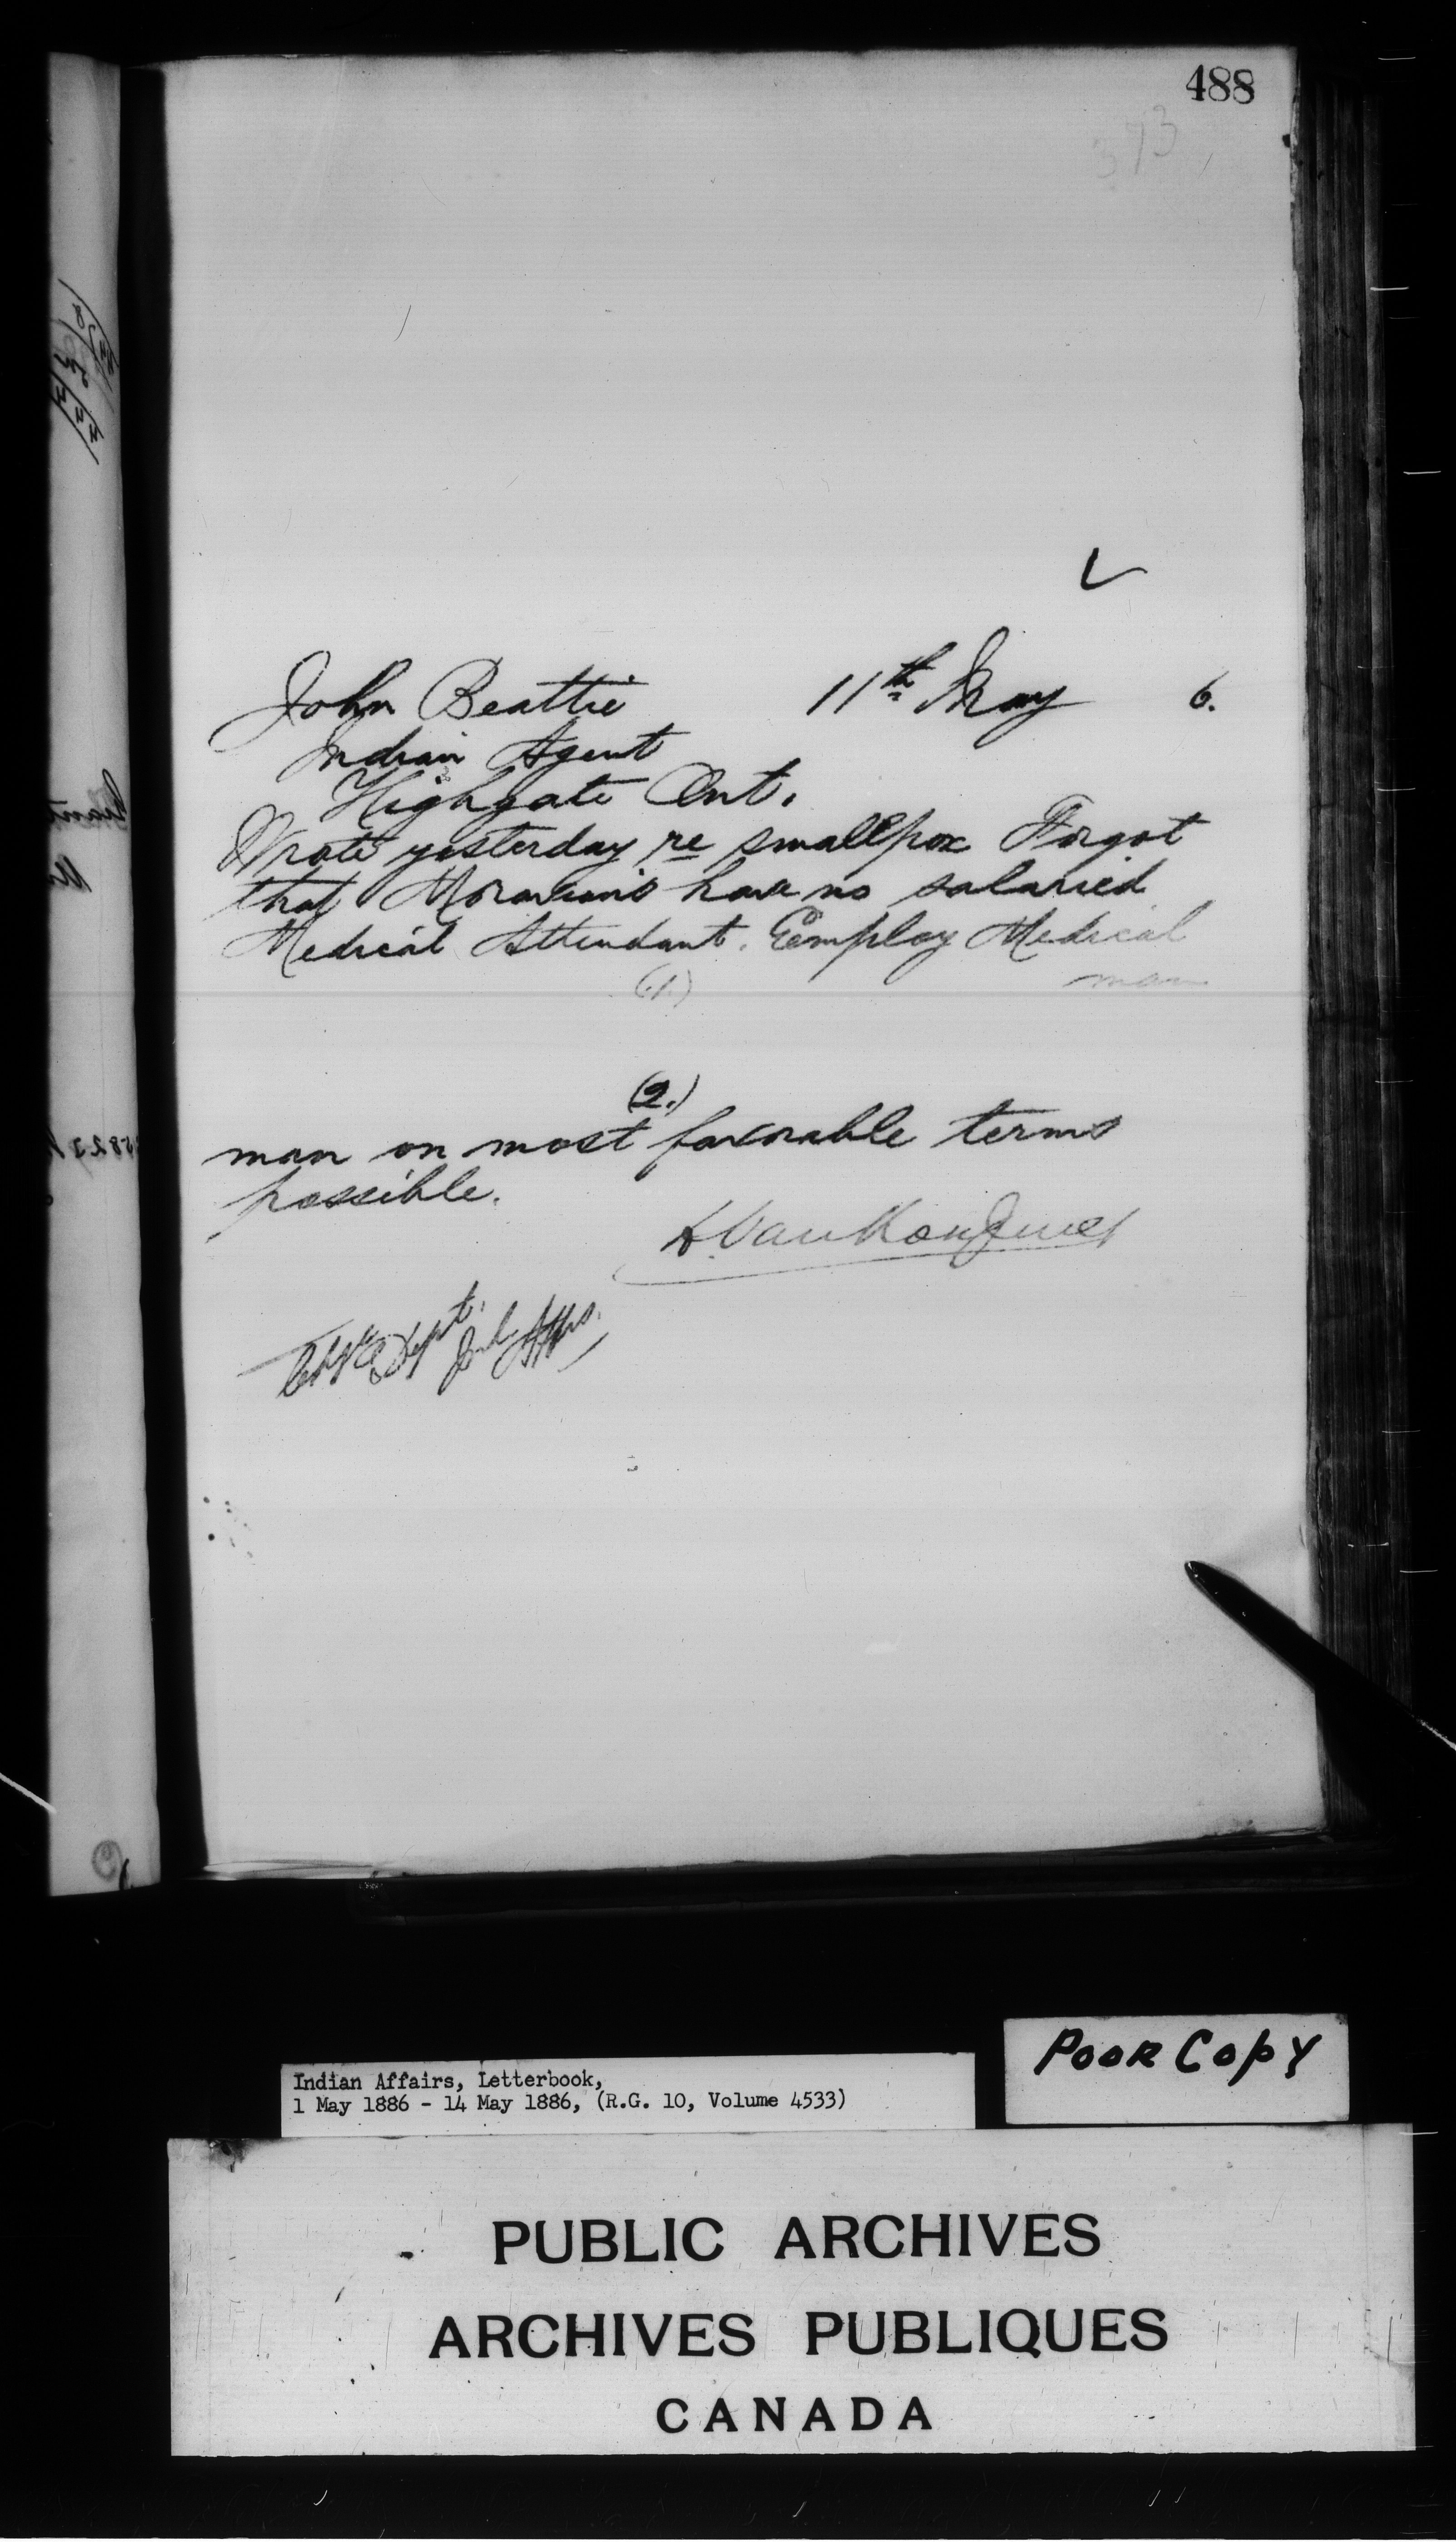 488
373
John Beattie 11th May 6.
Indian Agent
Highgate Ont.
Wrote yesterday re smallpox Forgot
that Moravians have no salaried
Medical Attendant. Employ Medical
(1.) man
(2.)
man on most favorable terms
possible.
L. VanKoughnet
Chge Dept. Ind Affrs.
Poor Copy
Indian Affairs, Letterbook,
1 May 1886 - 14 May 1886, (R.G. 10, Volume 4533)
PUBLIC ARCHIVES
ARCHIVES PUBLIQUES
CANADA